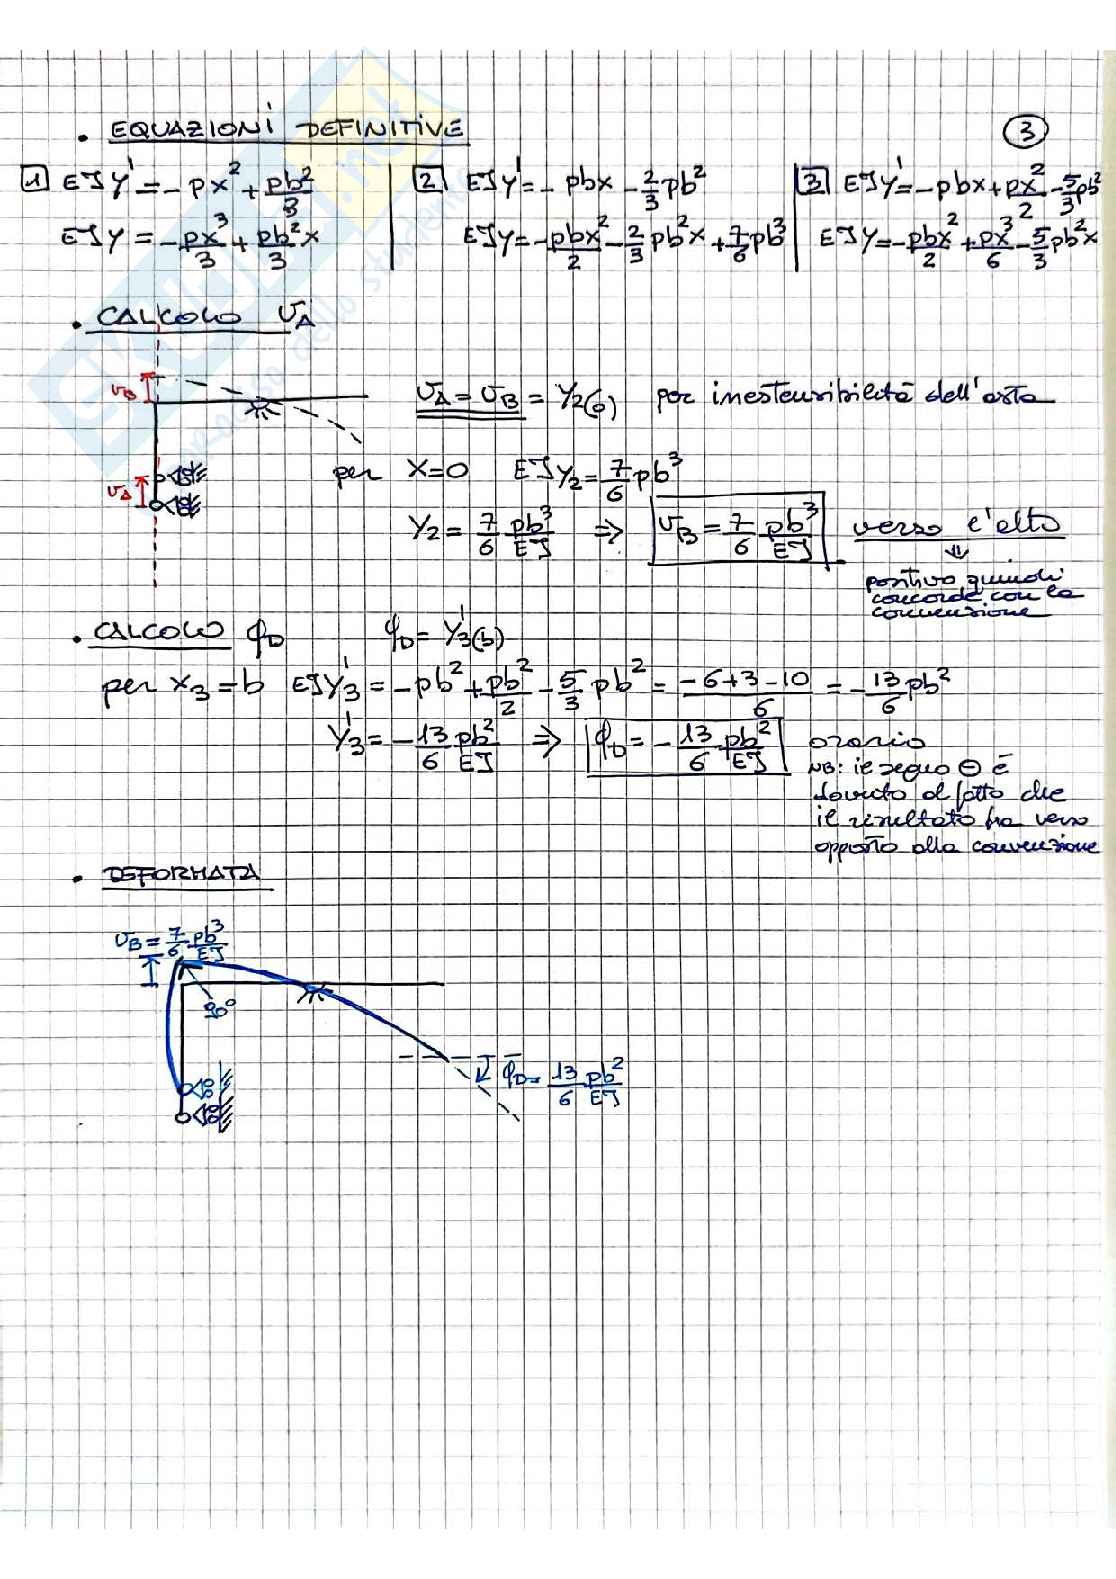 • EQUAZIONI DEFINITIVE
3
1 EJy' = -px² + pb²/3
EJy = -px³/3 + pb²x/3
2 EJy' = -pbx - 2/3 pb²
EJy = -pbx²/2 - 2/3 pb²x + 7/6 pb³
3 EJy' = -pbx + px²/2 - 5/3 pb²
EJy = -pbx²/2 + px³/6 - 5/3 pb²x
• CALCOLO vA
vB
vA
vA = vB = y2(0) per inestensibilità dell'asta
per x=0 EJy2 = 7/6 pb³
y2 = 7/6 pb³/EJ ⇒ vB = 7/6 pb³/EJ verso l'alto
⇓
positivo quindi
concorde con la
convenzione
• CALCOLO φD φD = y'3(b)
per x3 = b EJy'3 = -pb² + pb²/2 - 5/3 pb² = -6+3-10/6 = -13/6 pb²
y'3 = -13/6 pb²/EJ ⇒ φD = -13/6 pb²/EJ orario
NB: il segno ⊖ è
dovuto al fatto che
il risultato ha verso
opposto alla convenzione
• DEFORMATA
vB = 7/6 pb³/EJ
90°
φD = 13/6 pb²/EJ